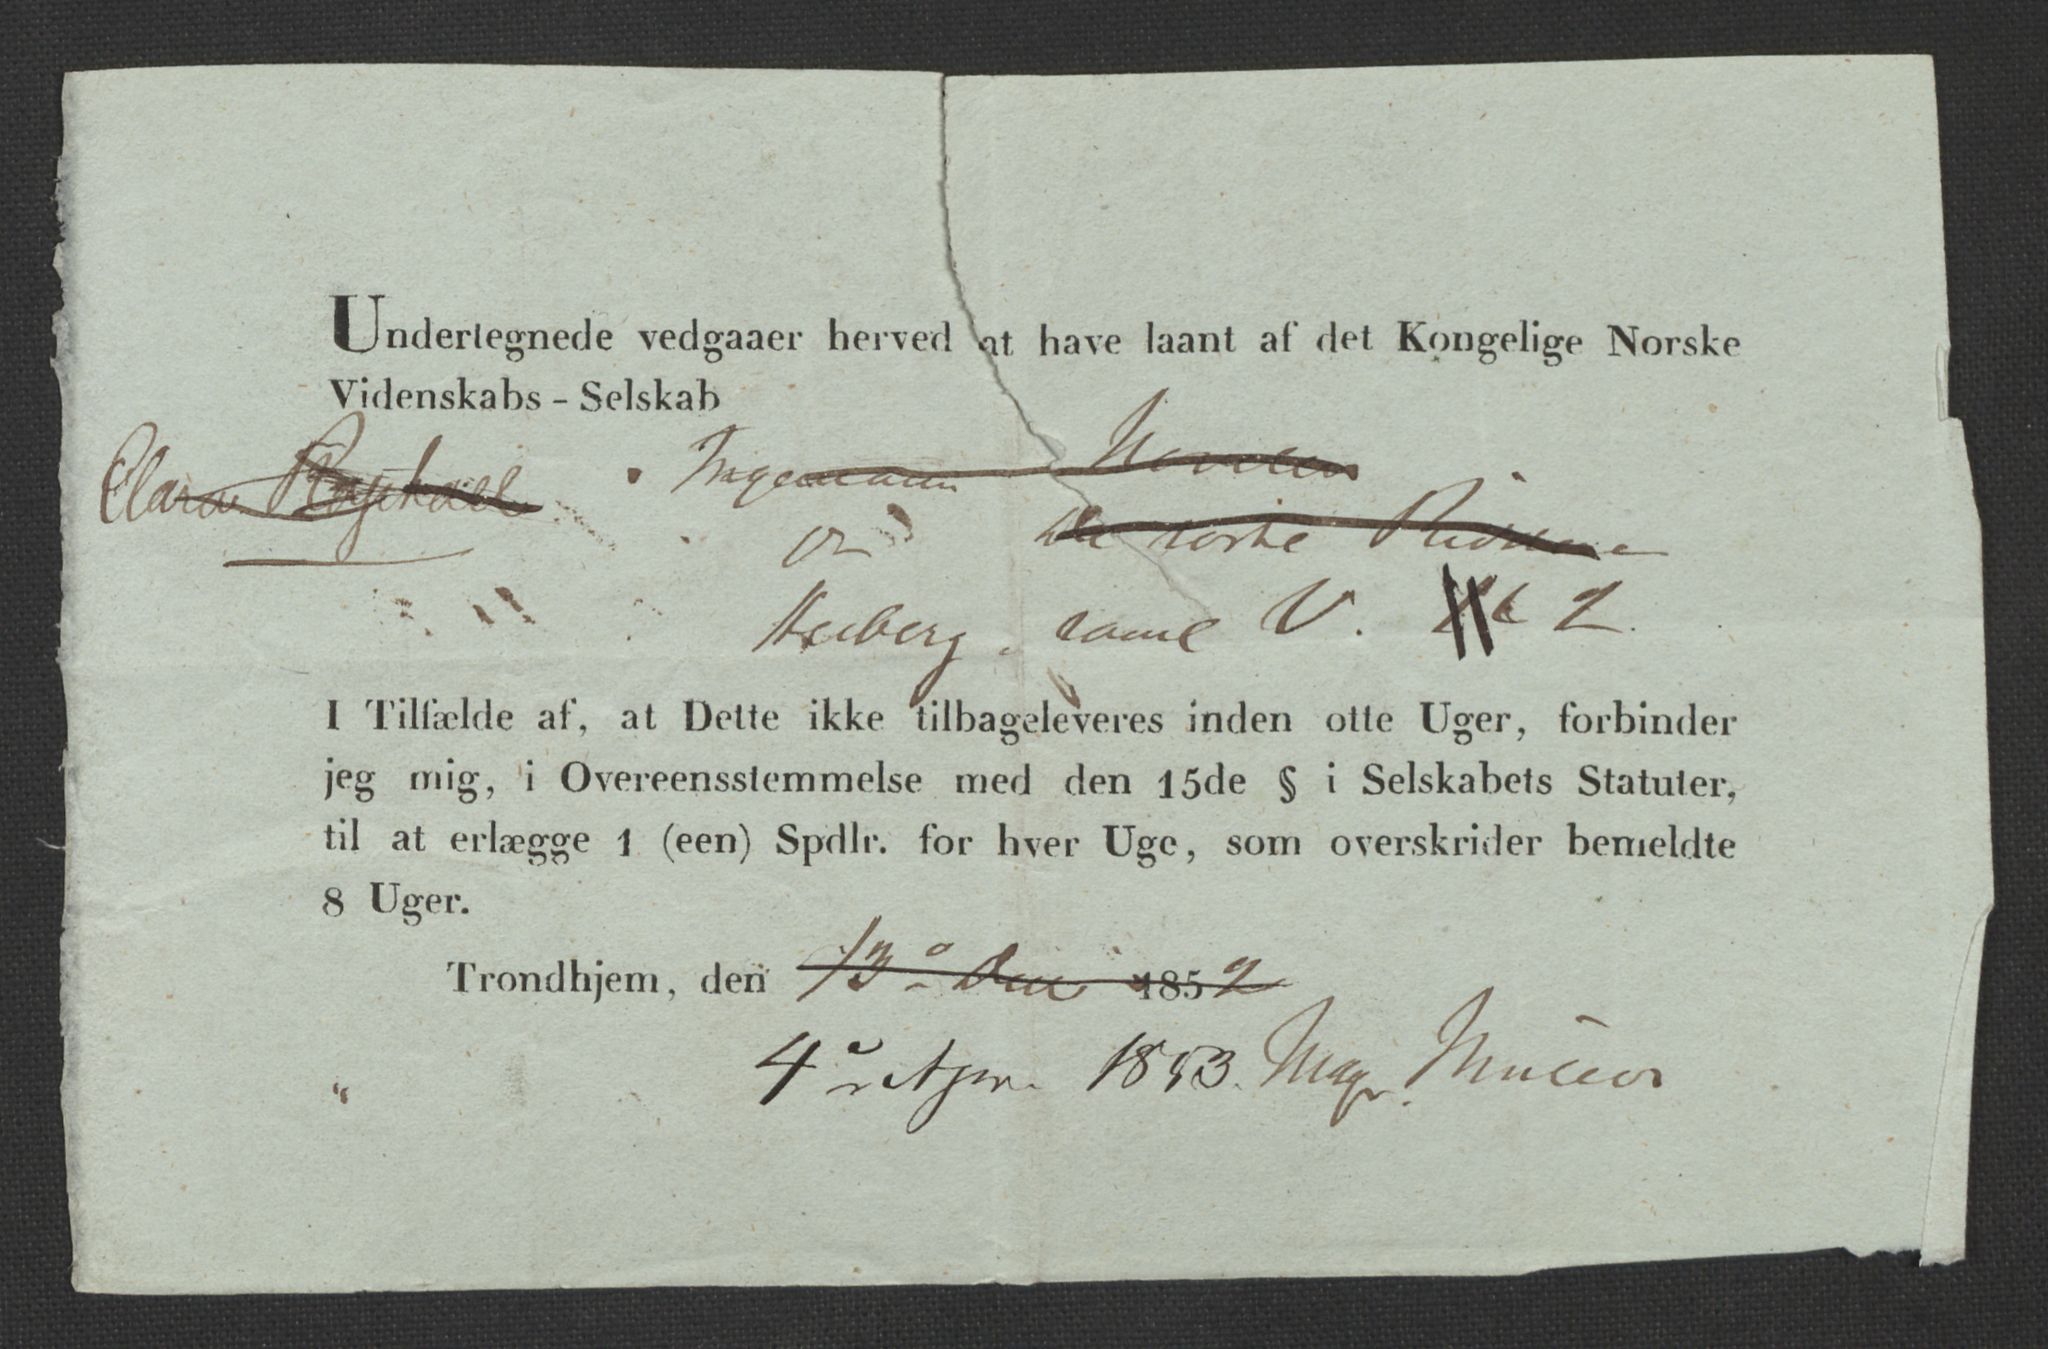 Undertegnede vedgaaer herved at have laant af det Kongelige Norske
Videnskabs - Selskab
Clara Raphael Ingemann Noveller
Heiberg. saml V. 2
I Tilfælde af, at Dette ikke tilbageleveres inden otte Uger, forbinder
jeg mig, i Overeensstemmelse med den 15de § i Selskabets Statuter,
til at erlægge 1 (een) Spdlr. for hver Uge, som overskrider bemeldte
8 Uger.
Trondhjem, den 13 1852
4 1853.